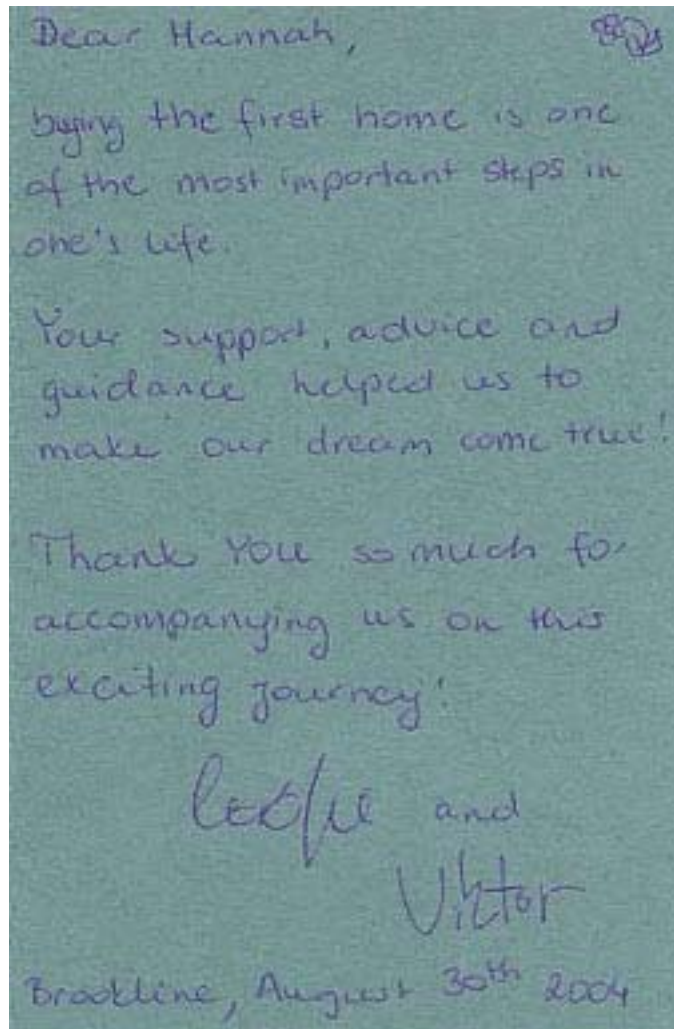 Dear Hannah,
buying the first home is one
of the most important steps in
one's life.
Your support, advice and
guidance helped us to
make our dream come true!
Thank You so much for
accompanying us on this
exciting journey!
and
Viktor
Brookline, August 30th 2004